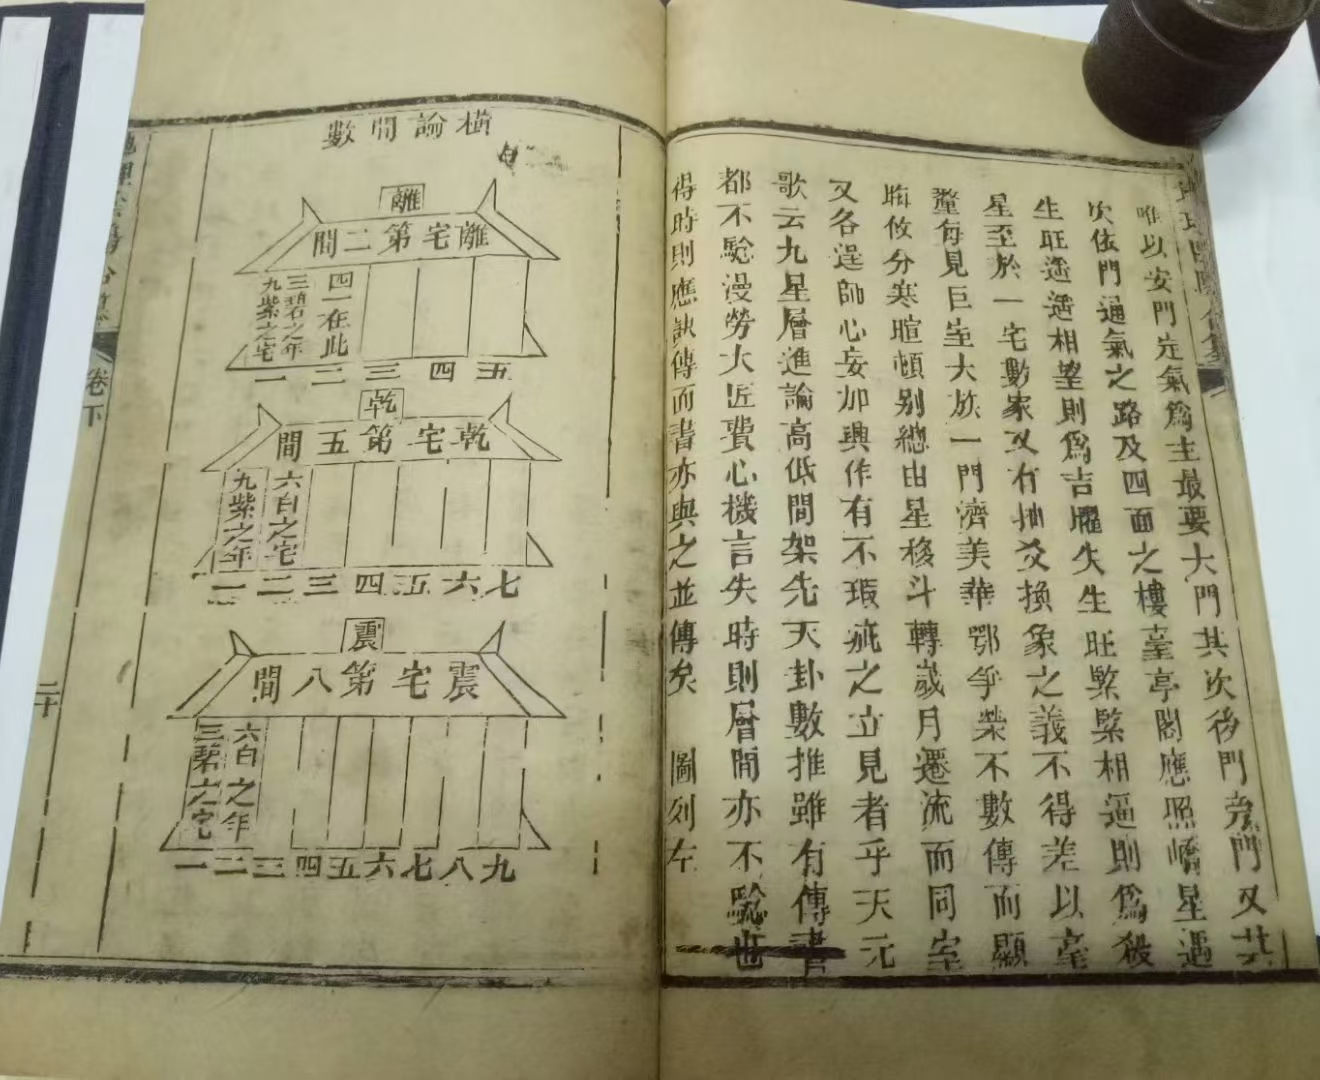 唯以安門定氣爲主最要大門其次後門旁門又其
次依門通氣之路及四面之樓臺亭閣應照嶠星遇
生旺遥遥相望則爲吉曜失生旺緊緊相逼則爲殺
星至於一宅數家又有抽爻換象之義不得差以毫
釐每見巨室大族一門濟美華鄂爭榮不數傳而顯
晦攸分寒暄頓别總由星移斗轉歲月遷流而同室
又各逞師心妄加興作有不瑕疵之立見者乎天元
歌云九星層進論高低間架先天卦數推雖有傳書
都不驗漫勞大匠費心機言失時則層間亦不驗也
得時則應訣傳而書亦與之並傳矣 圖列左
橫論間數
離
離宅第二間
四一在此
三碧之年
九紫之宅
一 二 三 四 五
乾
乾宅第五間
六白之宅
九紫之年
一 二 三 四 五 六 七
震
震宅第八間
六白之年
三碧之宅
一 二 三 四 五 六 七 八 九
卷下
二十